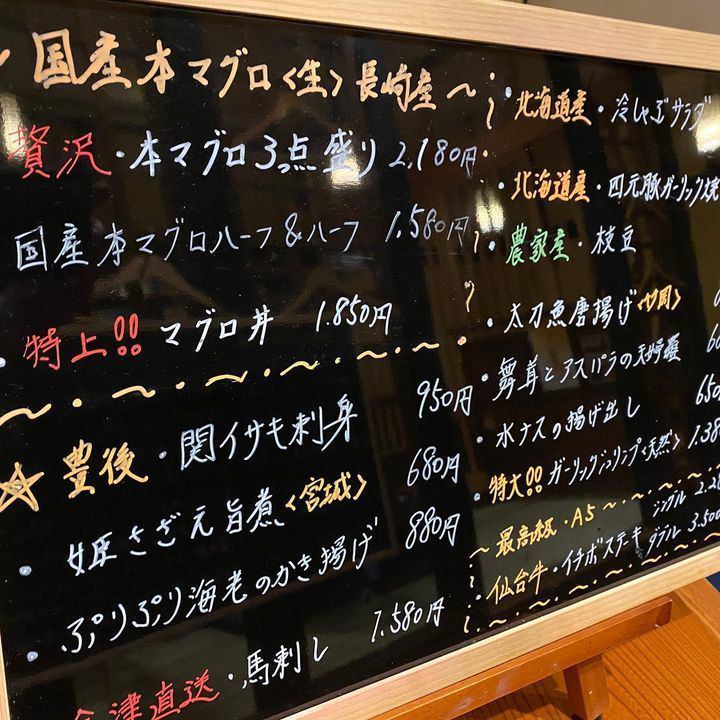 ～国産本マグロ〈生〉長崎産～
贅沢・本マグロ3点盛り 2,180円
国産本マグロハーフ&ハーフ 1,580円
・特上!!マグロ丼 1,850円
☆豊後・関イサキ刺身 950円
・姫さざえ旨煮〈宮城〉 680円
・ぷりぷり海老のかき揚げ 880円
津直送・馬刺し 1,580円
・北海道産・冷しゃぶサラダ
・北海道産・四元豚ガーリック焼
・農家産・枝豆
・太刀魚磨揚げ
・舞茸とアスパラの天婦羅
・水ナスの揚げ出し 650
・特大!!ガーリックシュリンプ〈天然〉 1,38
～最高級・A5～
仙台牛・イチボステーキ シングル 2,28
ダブル 3,500